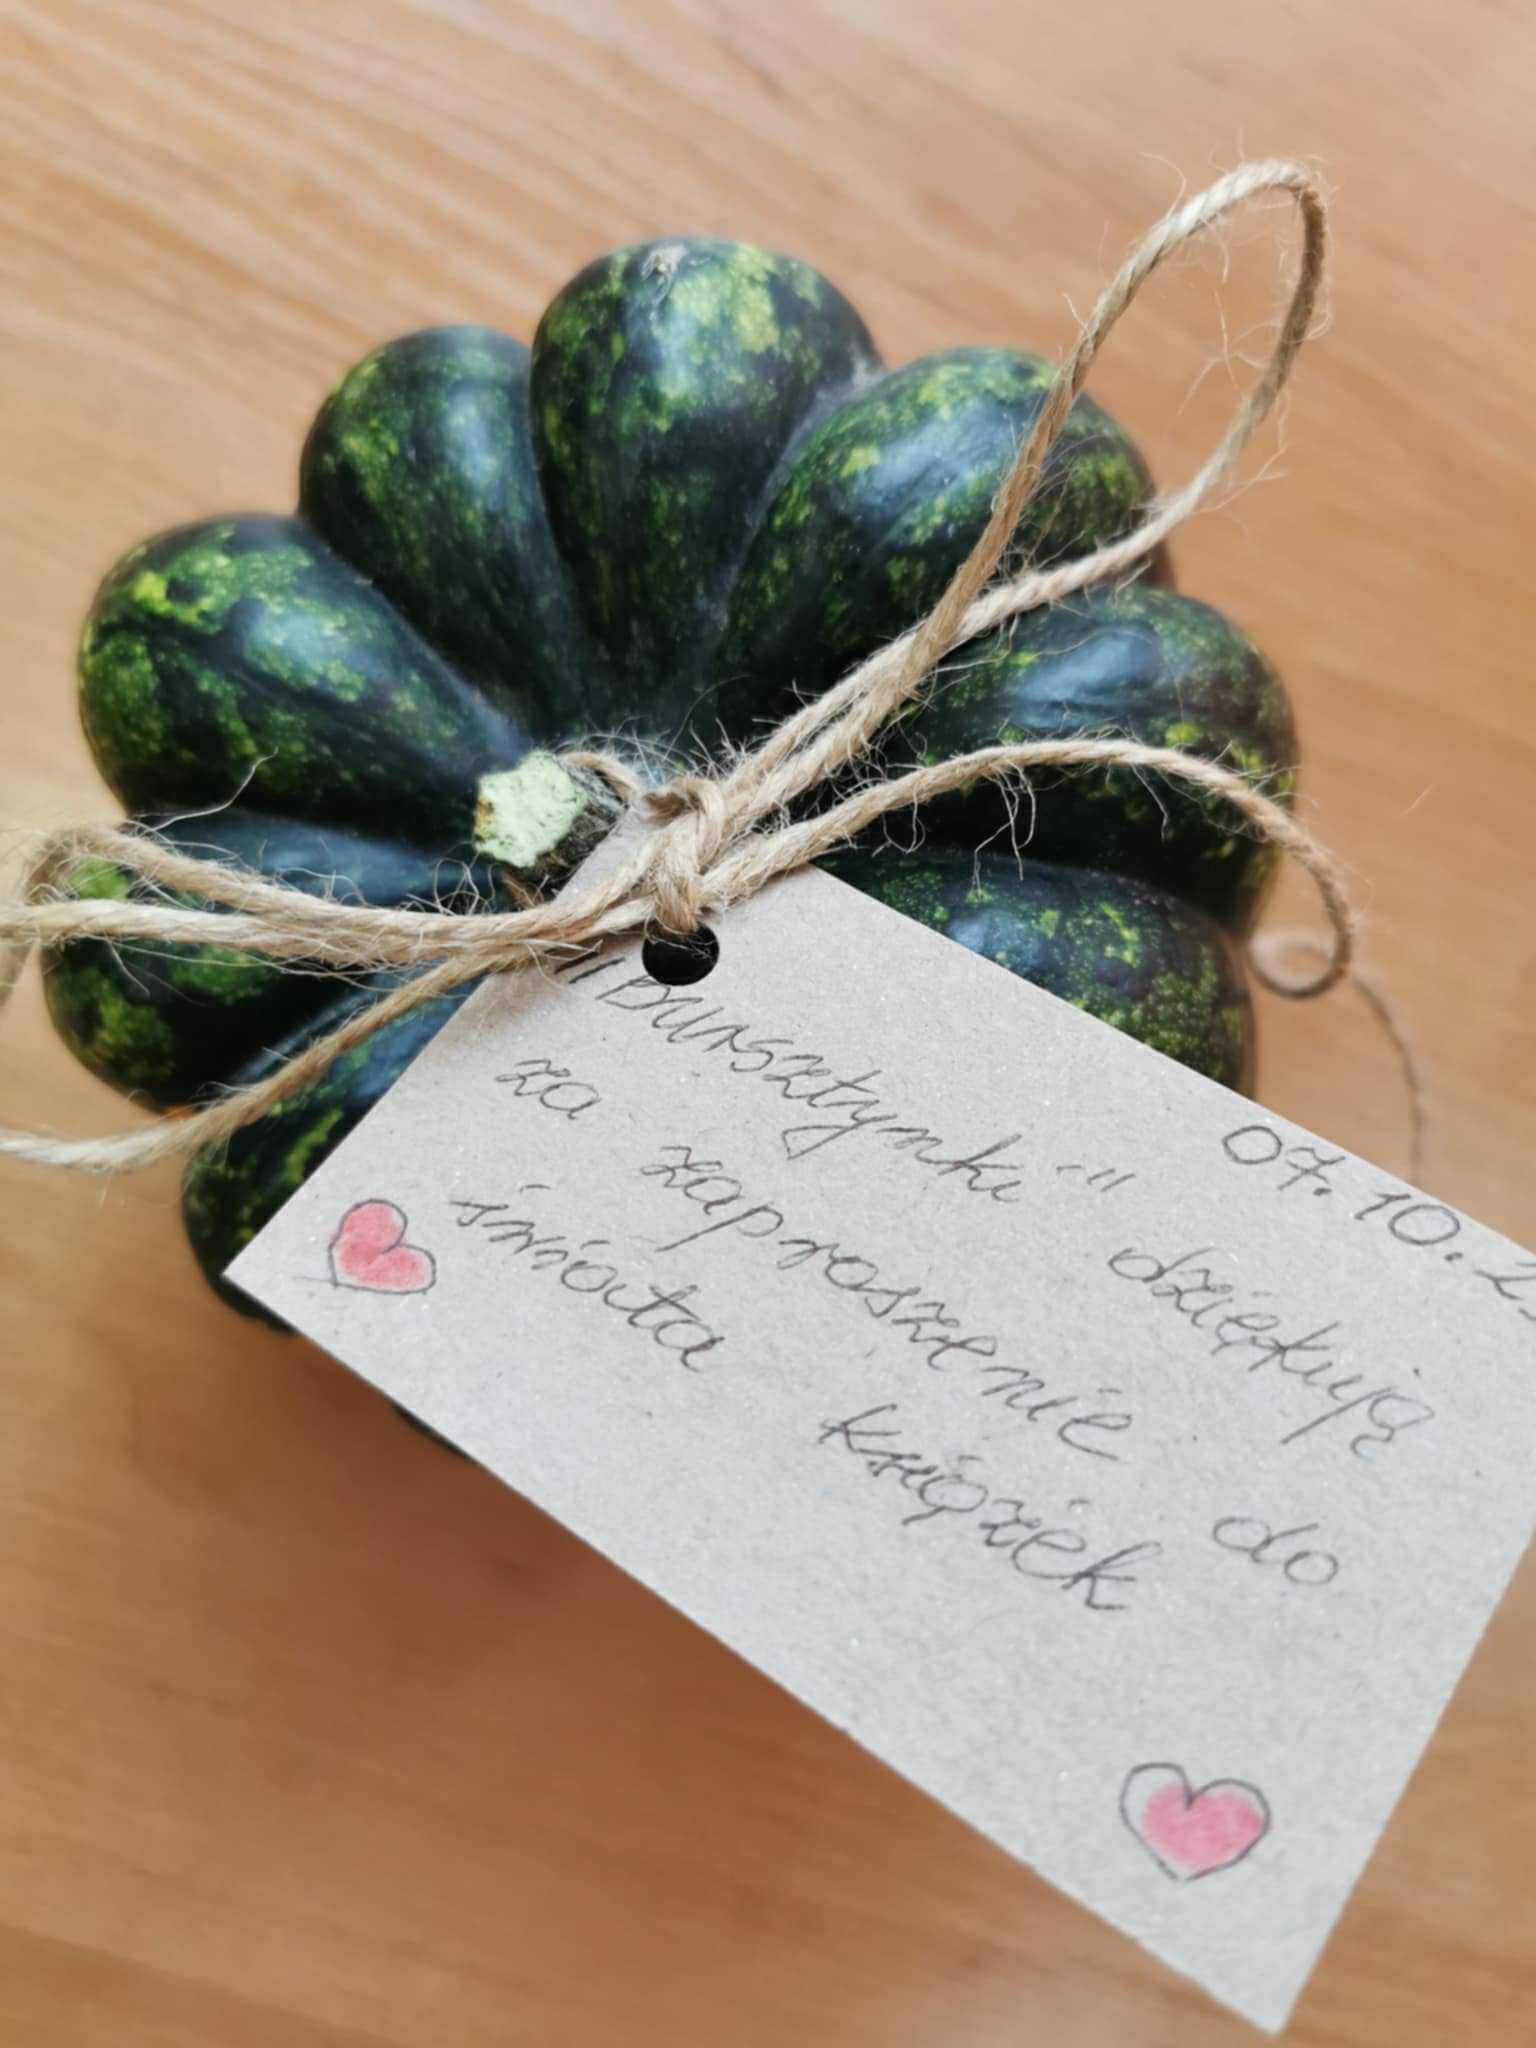 07.10.2
"Bursztynki" dziękują
za zaproszenie do
świata książek